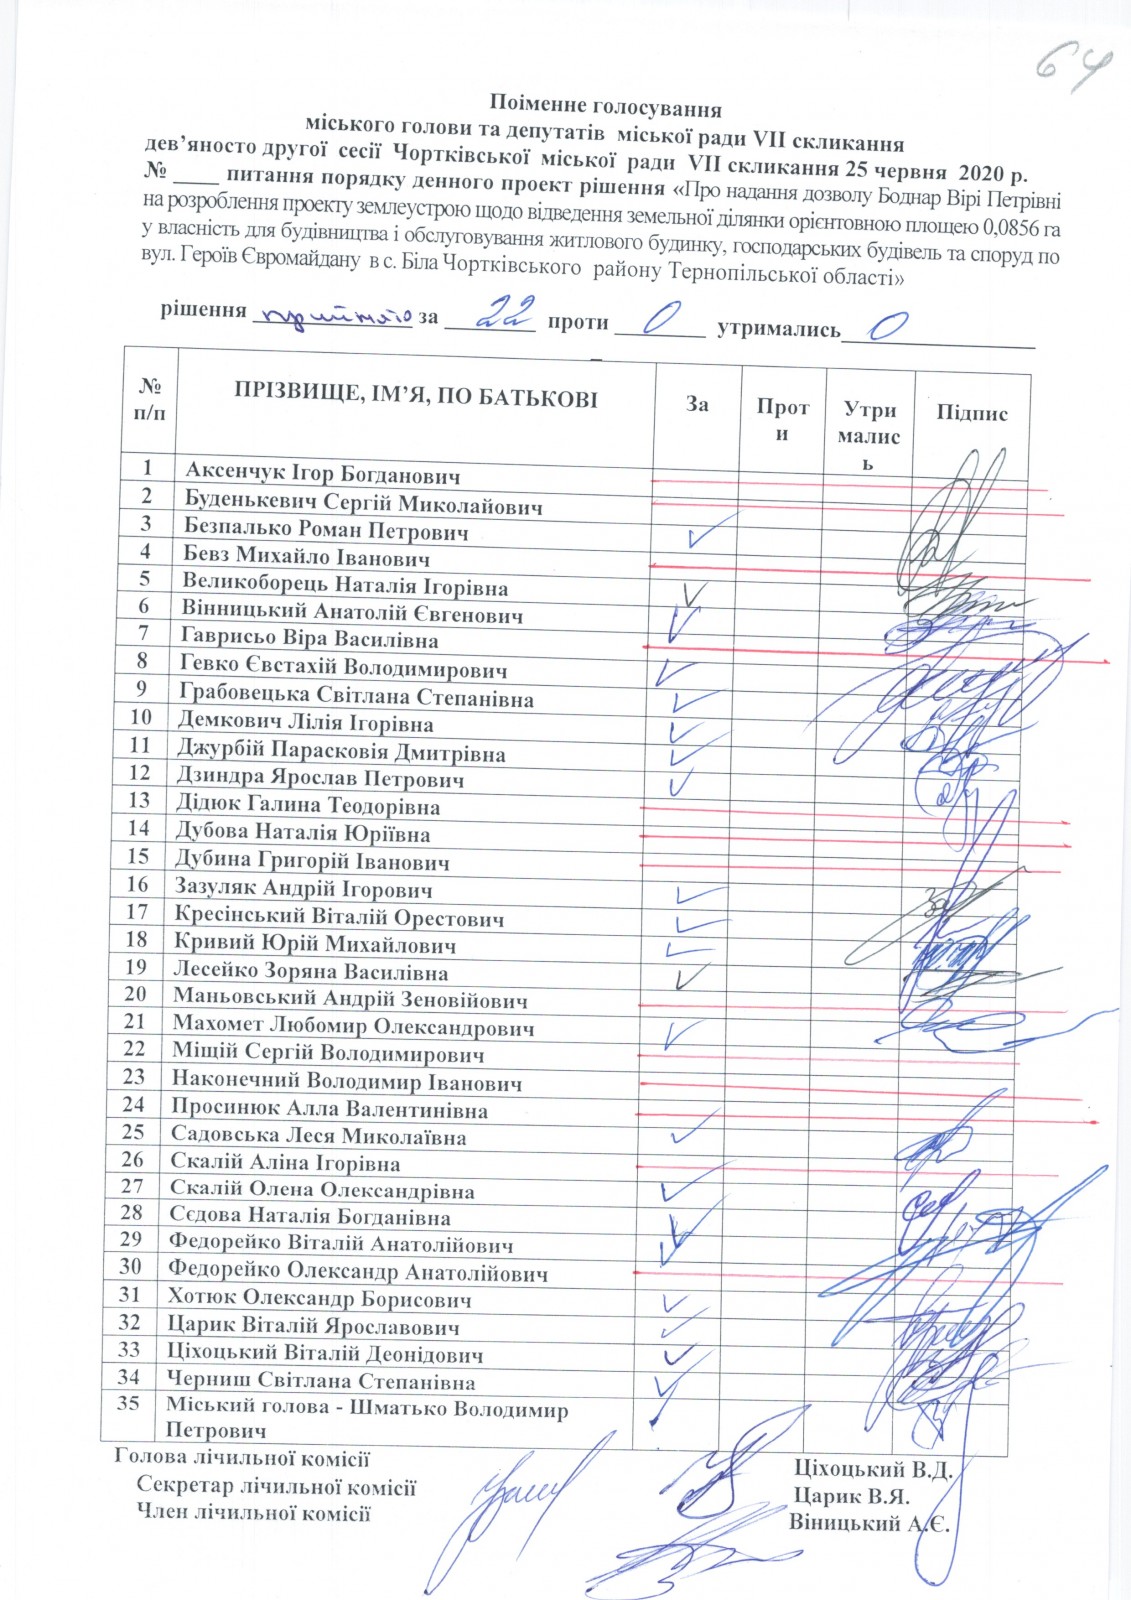 64
Поіменне голосування
міського голови та депутатів міської ради VII скликання
дев’яносто другої сесії Чортківської міської ради VII скликання 25 червня 2020 р.
№ ____ питання порядку денного проект рішення «Про надання дозволу Боднар Вірі Петрівні
на розроблення проекту землеустрою щодо відведення земельної ділянки орієнтовною площею 0,0856 га
у власність для будівництва і обслуговування житлового будинку, господарських будівель та споруд по
вул. Героїв Євромайдану в с. Біла Чортківського району Тернопільської області»
рішення прийнято за 22 проти 0 утримались 0
№ п/п ПРІЗВИЩЕ, ІМ’Я, ПО БАТЬКОВІ За Проти Утримались Підпис
1 Аксенчук Ігор Богданович
2 Буденькевич Сергій Миколайович
3 Безпалько Роман Петрович
4 Бевз Михайло Іванович
5 Великоборець Наталія Ігорівна
6 Вінницький Анатолій Євгенович
7 Гаврисьо Віра Василівна
8 Гевко Євстахій Володимирович
9 Грабовецька Світлана Степанівна
10 Демкович Лілія Ігорівна
11 Джурбій Парасковія Дмитрівна
12 Дзиндра Ярослав Петрович
13 Дідюк Галина Теодорівна
14 Дубова Наталія Юріївна
15 Дубина Григорій Іванович
16 Зазуляк Андрій Ігорович
17 Кресінський Віталій Орестович
18 Кривий Юрій Михайлович
19 Лесейко Зоряна Василівна
20 Маньовський Андрій Зеновійович
21 Махомет Любомир Олександрович
22 Міщій Сергій Володимирович
23 Наконечний Володимир Іванович
24 Просинюк Алла Валентинівна
25 Садовська Леся Миколаївна
26 Скалій Аліна Ігорівна
27 Скалій Олена Олександрівна
28 Сєдова Наталія Богданівна
29 Федорейко Віталій Анатолійович
30 Федорейко Олександр Анатолійович
31 Хотюк Олександр Борисович
32 Царик Віталій Ярославович
33 Ціхоцький Віталій Деонідович
34 Черниш Світлана Степанівна
35 Міський голова - Шматько Володимир
Петрович
Голова лічильної комісії Ціхоцький В.Д.
Секретар лічильної комісії Царик В.Я.
Член лічильної комісії Віницький А.Є.